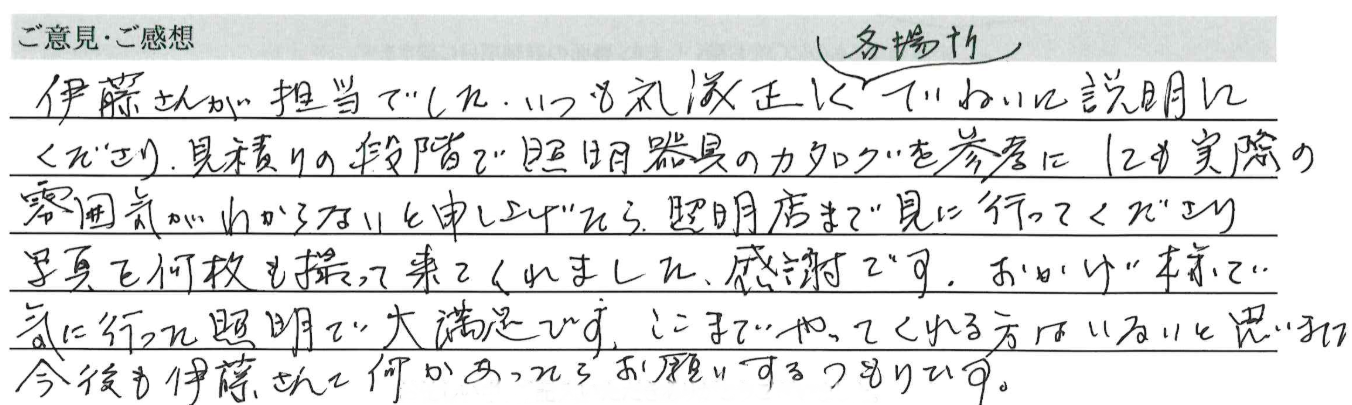 ご意見・ご感想
各場所
伊藤さんが担当でした。いつも礼儀正しくていねいに説明に
くださり、見積りの段階で照明器具のカタログを参考にしても実際の
雰囲気がわからないと申し上げたら、照明店まで見に行ってくださり
写真を何枚も撮って来てくれました、感謝です。おかげ様で
気に行った照明で大満足です。ここまでやってくれる方はいないと思います
今後も伊藤さんに何かあったらお願いするつもりです。